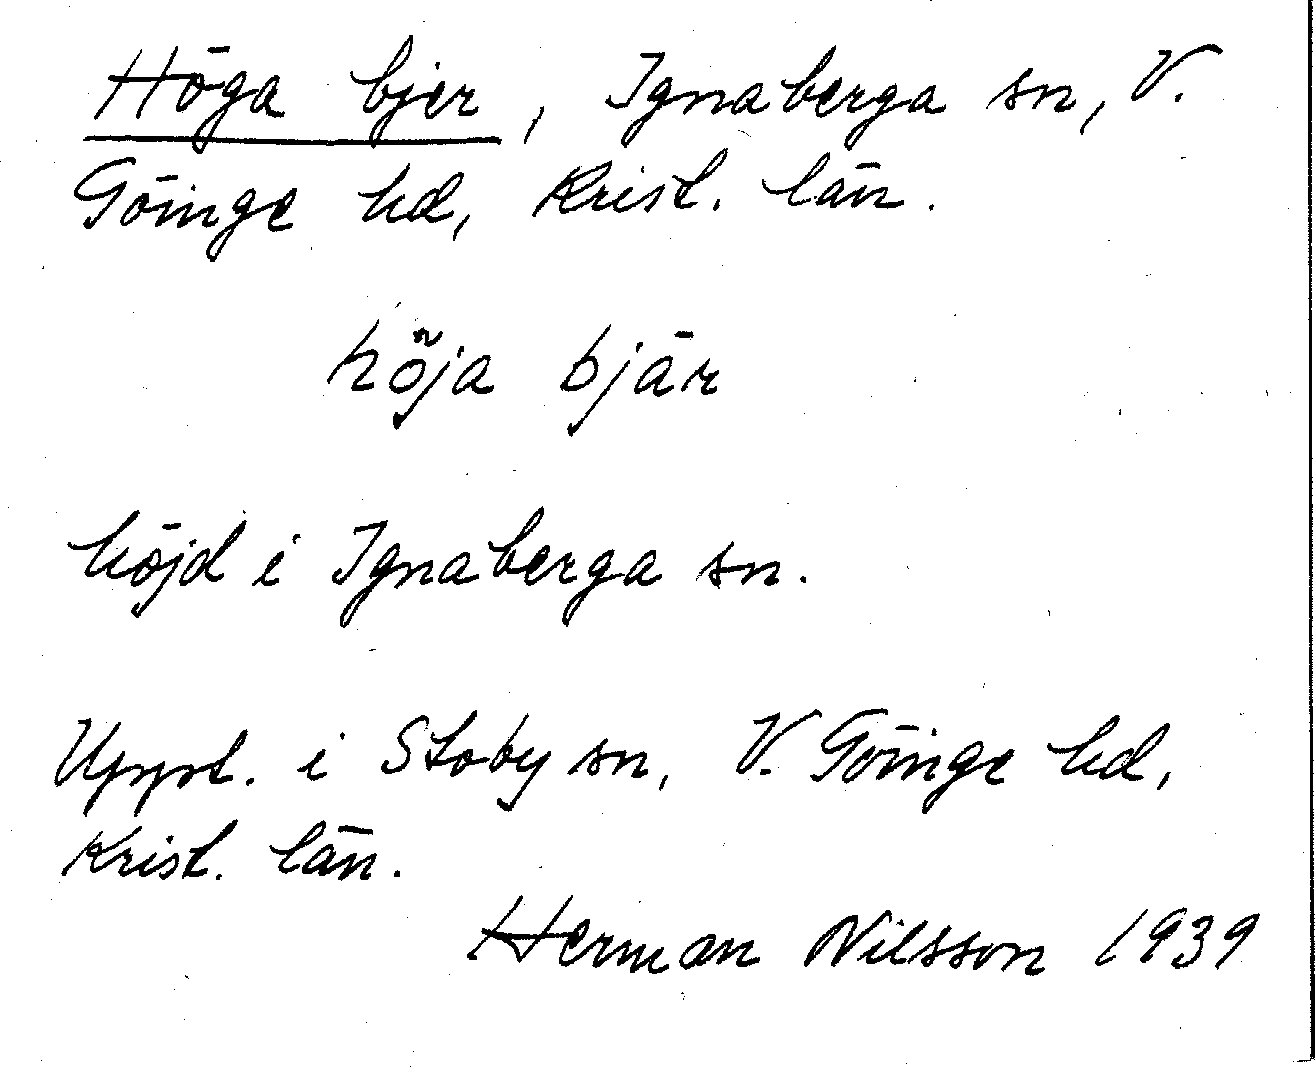 Höga bjer, Ignaberga sn, V.
Göinge hd, Krist. län.
höja bjär
höjd i Ignaberga sn.
Uppt. i Stoby sn, V. Göinge hd,
Krist. län.
Herman Nilsson 1939